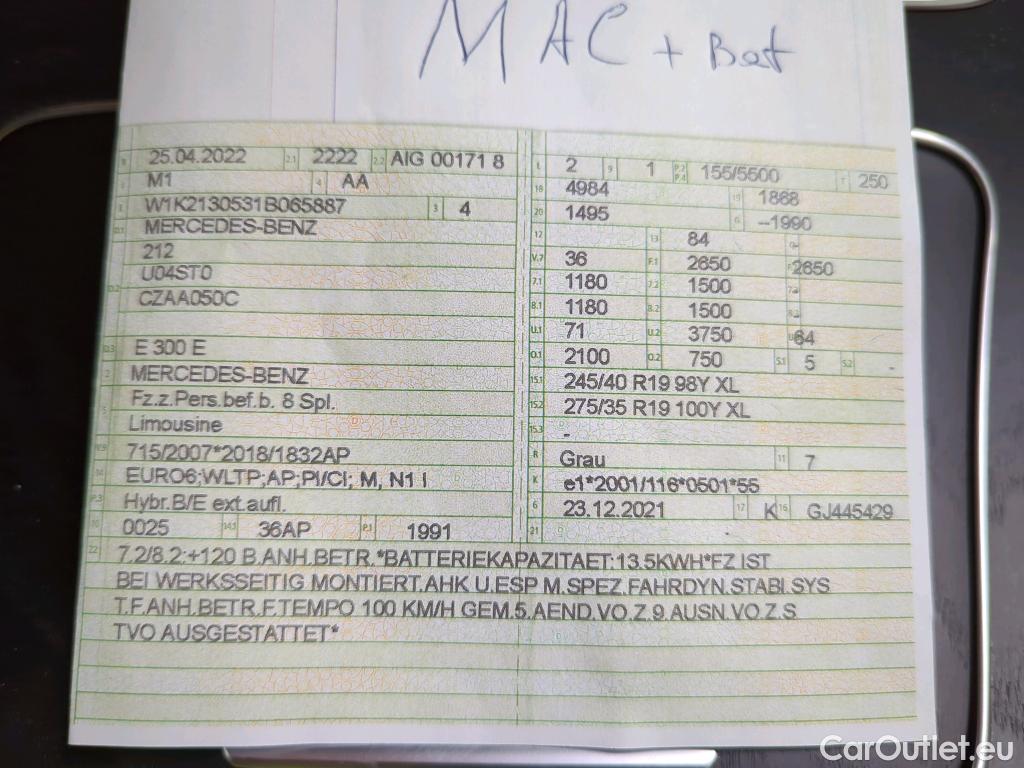 MAC + Bat
25.04.2022 2.1 2222 2.2 AIG 00171 8
M1 4 AA
W1K2130531B065887 3 4
MERCEDES-BENZ
212
U04ST0
CZAA050C
E 300 E
MERCEDES-BENZ
Fz.z.Pers.bef.b. 8 Spl.
Limousine
715/2007*2018/1832AP
EURO6;WLTP;AP;PI/CI; M, N1 I
Hybr.B/E ext.aufl.
0025 14.1 36AP P.1 1991
L 2 9 1 P.2 P.4 155/5500 T 250
18 4984 19 1868
20 1495 G --1990
12 13 84
V.7 36 F.1 2650 2650
7.1 1180 7.2 1500
8.1 1180 8.2 1500
U.1 71 U.2 3750 64
O.1 2100 O.2 750 S.1 5 S.2 -
15.1 245/40 R19 98Y XL
15.2 275/35 R19 100Y XL
15.3 -
R Grau 11 7
K e1*2001/116*0501*55
6 23.12.2021 17 K 16 GJ445429
21
22 7.2/8.2:+120 B.ANH.BETR.*BATTERIEKAPAZITAET:13.5KWH*FZ IST
BEI WERKSSEITIG MONTIERT.AHK U.ESP M.SPEZ.FAHRDYN.STABI.SYS
T.F.ANH.BETR.F.TEMPO 100 KM/H GEM.5.AEND.VO.Z.9.AUSN.VO.Z.S
TVO AUSGESTATTET*
CarOutlet.eu